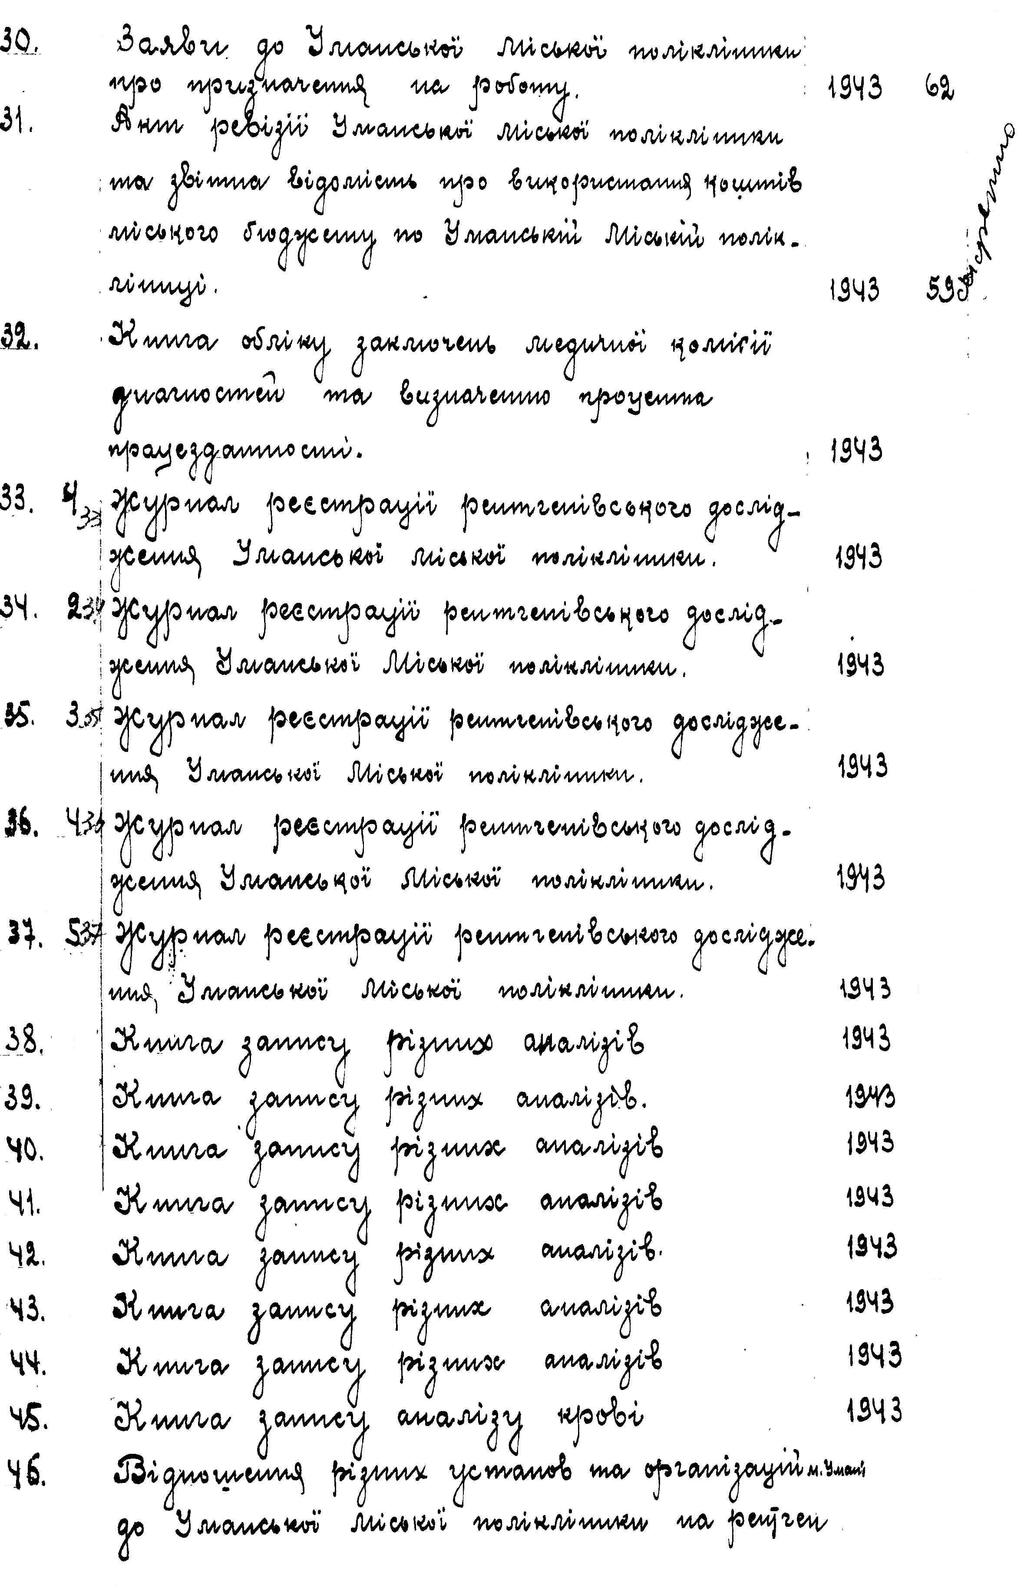 30. Заяви до Уманської міської поліклініки
про призначення на роботу. 1943 62
31. Акт ревізії Уманської міської поліклініки
та звітна відомість про використання коштів
міського бюджету по Уманській Міській полік-
лініці. 1943 59
32. Книга обліку заключень медичної комісії
діагностей та визначенню процента
працездатності. 1943
33. Журнал реєстрації рентгенівського дослід-
ження Уманської міської поліклініки. 1943
34. 2 34 Журнал реєстрації рентгенівського дослід-
ження Уманської Міської поліклініки. 1943
35. 3 35 Журнал реєстрації рентгенівського дослідже-
ння Уманської Міської поліклініки. 1943
36. 4 36 Журнал реєстрації рентгенівського дослід-
ження Уманської Міської поліклініки. 1943
37. 5 37 Журнал реєстрації рентгенівського дослідже-
ння Уманської Міської поліклініки. 1943
38. Книга запису різних аналізів 1943
39. Книга запису різних аналізів. 1943
40. Книга запису різних аналізів 1943
41. Книга запису різних аналізів 1943
42. Книга запису різних аналізів. 1943
43. Книга запису різних аналізів 1943
44. Книга запису різних аналізів 1943
45. Книга запису аналізу крові 1943
46. Відношення різних установ та організацій м. Умані
до Уманської міської поліклініки на рентген